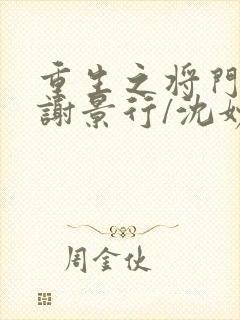 重生之将门
謝景行/沈妙
周金伙